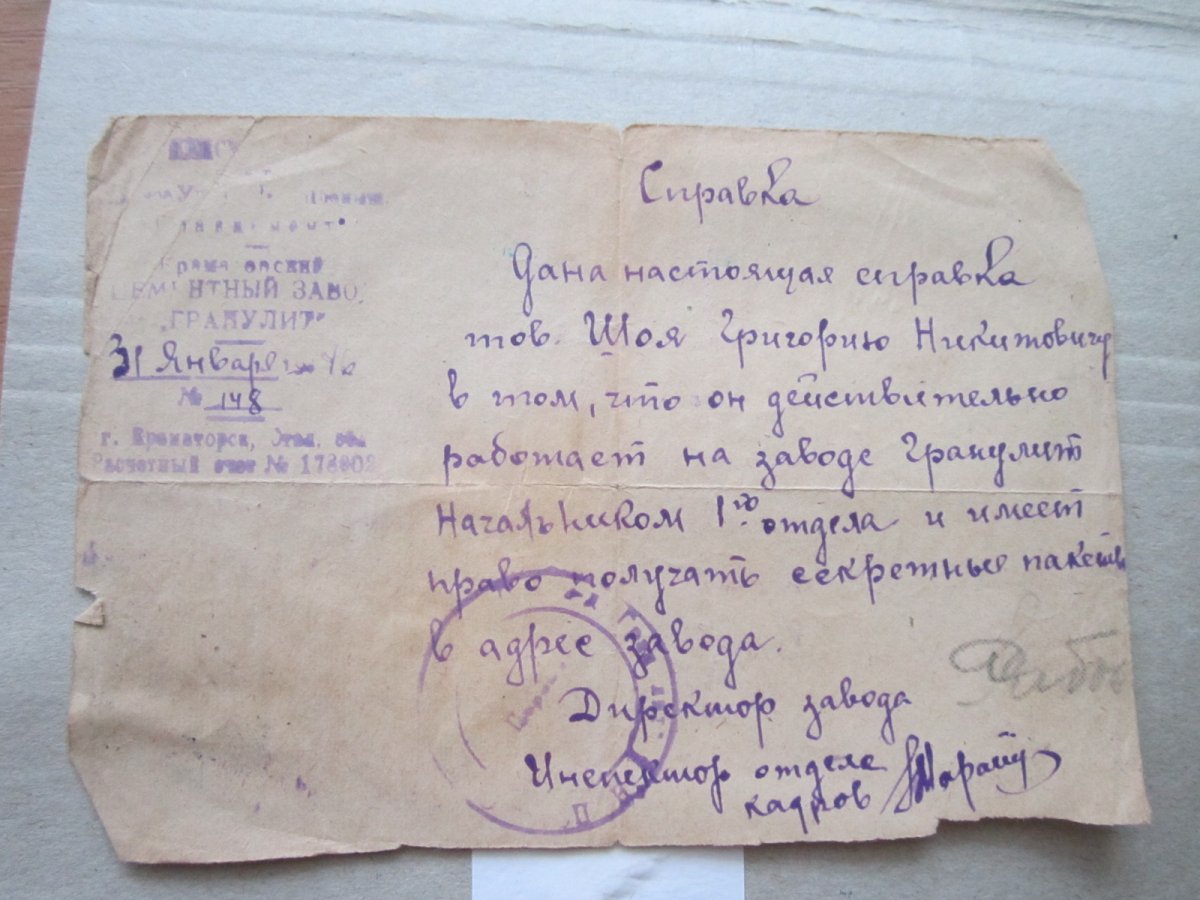 ЦЕМЕНТНЫЙ ЗАВОД
"ГРАНУЛИТ"
31 Января 1946
№ 148
г. Краматорск, Стал. обл.
Расчетный счет № 178002
Справка
Дана настоящая справка
тов. Шоя Григорию Никитовичу
в том, что он действительно
работает на заводе Гранулит
Начальником 1го отдела и имеет
право получать секретные пакеты
в адрес завода.
Директор завода
Инспектор отдела
кадров